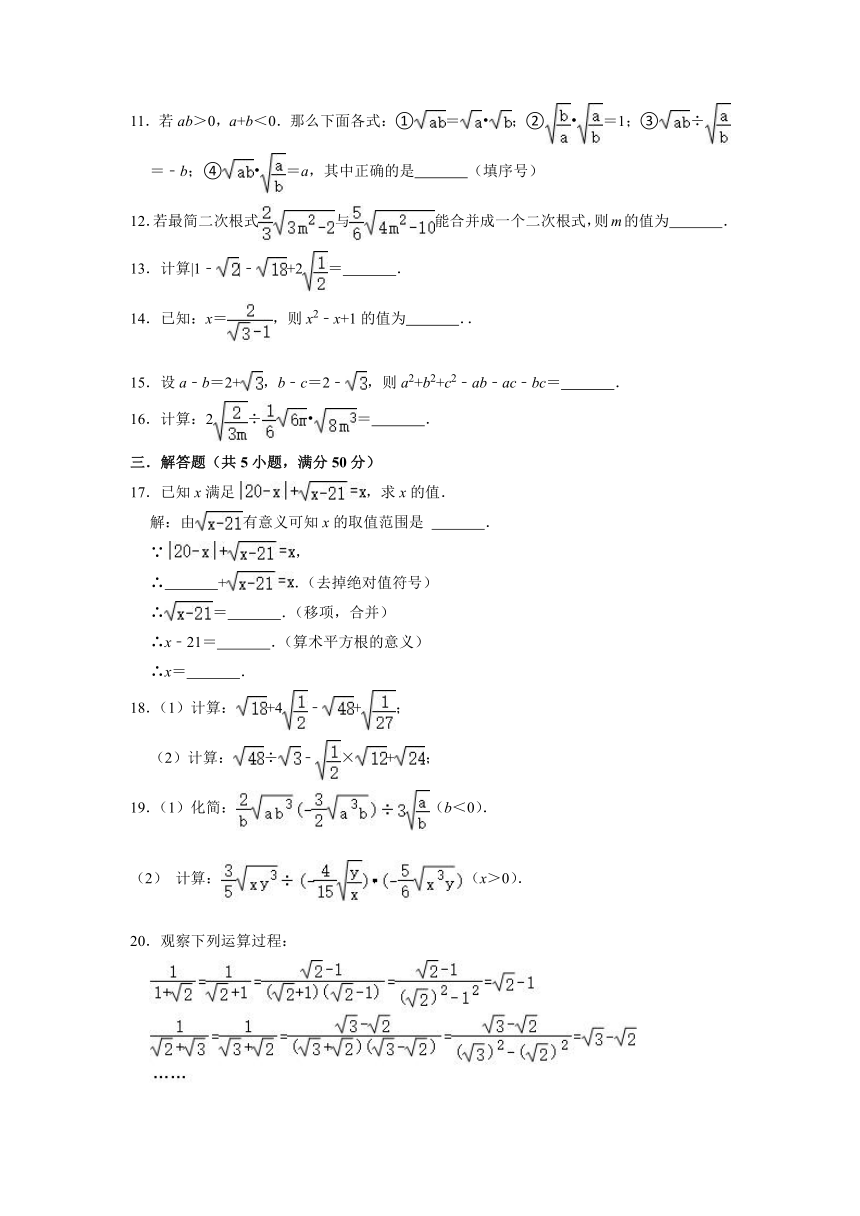 11．若 ab＞0，a+b＜0．那么下面各式：①√ab=√a•√b；②√(b/a)•√(a/b)=1；③√ab÷√(a/b)
=﹣b；④√ab•√(a/b)=a，其中正确的是______（填序号）
12．若最简二次根式(2/3)√(3m²-2)与(5/6)√(4m²-10)能合并成一个二次根式，则 m 的值为______．
13．计算|1﹣√2|﹣√18+2√(1/2)=______．
14．已知：x=2/(√3-1)，则 x²﹣x+1 的值为______．.
15．设 a﹣b=2+√3，b﹣c=2﹣√3，则 a²+b²+c²﹣ab﹣ac﹣bc=______．
16．计算：2√(2/(3m))÷(1/6)√6m•√(8m³)=______．
三．解答题（共 5 小题，满分 50 分）
17．已知 x 满足|20-x|+√(x-21)=x，求 x 的值．
解：由√(x-21)有意义可知 x 的取值范围是 ______．
∵|20-x|+√(x-21)=x，
∴______+√(x-21)=x．（去掉绝对值符号）
∴√(x-21)=______．（移项，合并）
∴x﹣21=______．（算术平方根的意义）
∴x=______．
18．（1）计算：√18+4√(1/2)﹣√48+√(1/27)；
（2）计算：√48÷√3﹣√(1/2)×√12+√24；
19．（1）化简：(2/b)√(ab³)(-(3/2)√(a³b))÷3√(a/b)（b＜0）．
（2） 计算：(3/5)√(xy³)÷(-(4/15)√(y/x))•(-(5/6)√(x³y))（x＞0）．
20．观察下列运算过程：
1/(1+√2)=1/(√2+1)=(√2-1)/((√2+1)(√2-1))=(√2-1)/((√2)²-1²)=√2-1
1/(√2+√3)=1/(√3+√2)=(√3-√2)/((√3+√2)(√3-√2))=(√3-√2)/((√3)²-(√2)²)=√3-√2
……